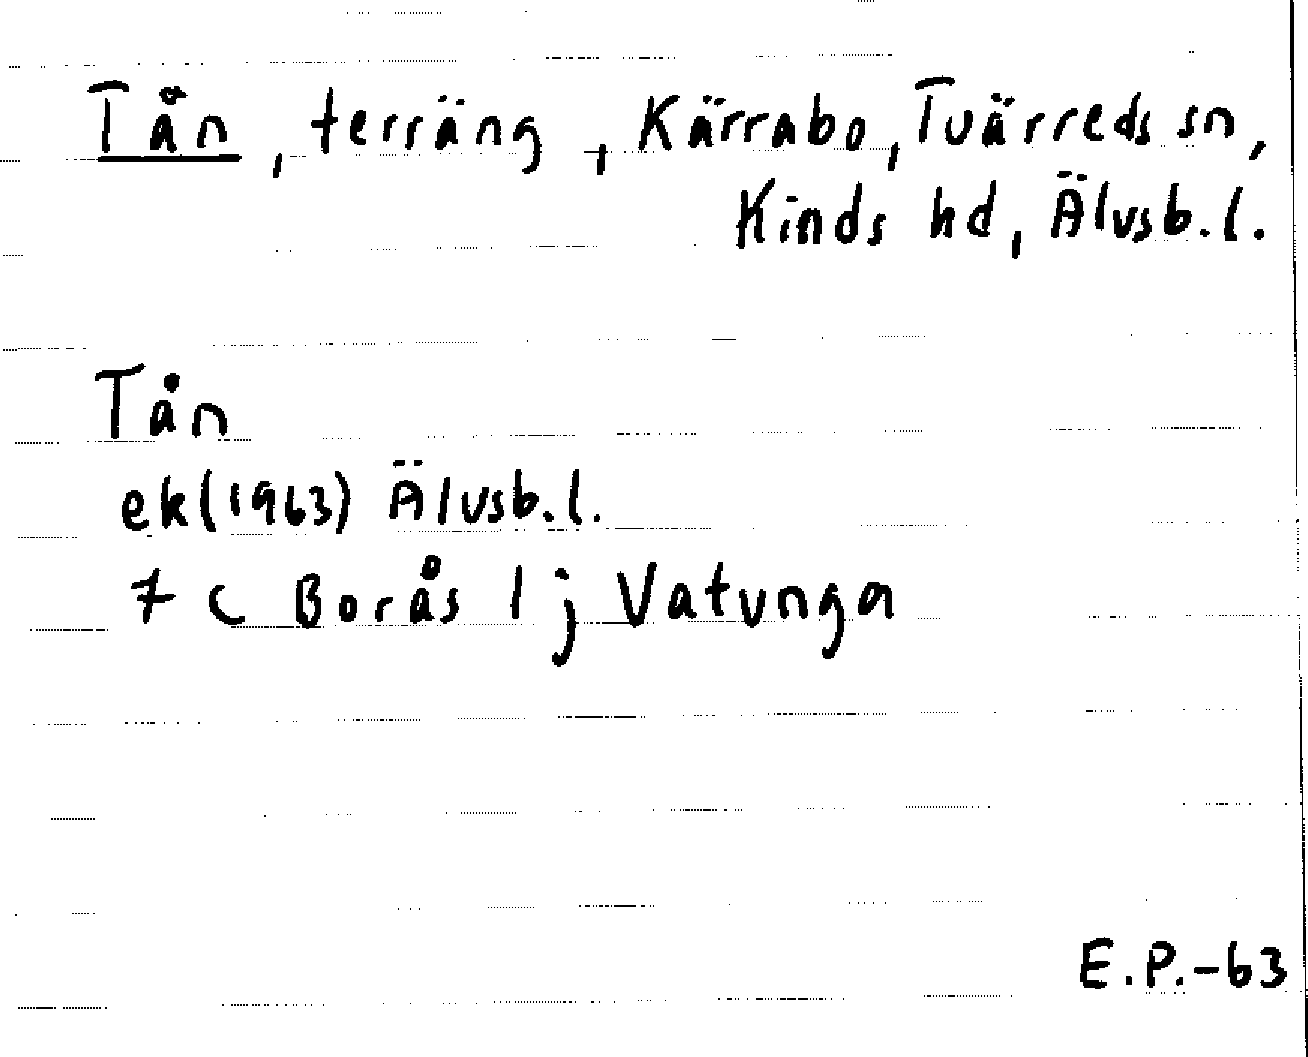 Tån, terräng, Kärrabo, Tvärreds sn,
Kinds hd, Älvsb.l.
Tån
ek(1963) Älvsb.l.
7 C Borås 1 j Vatunga
E.P.-63